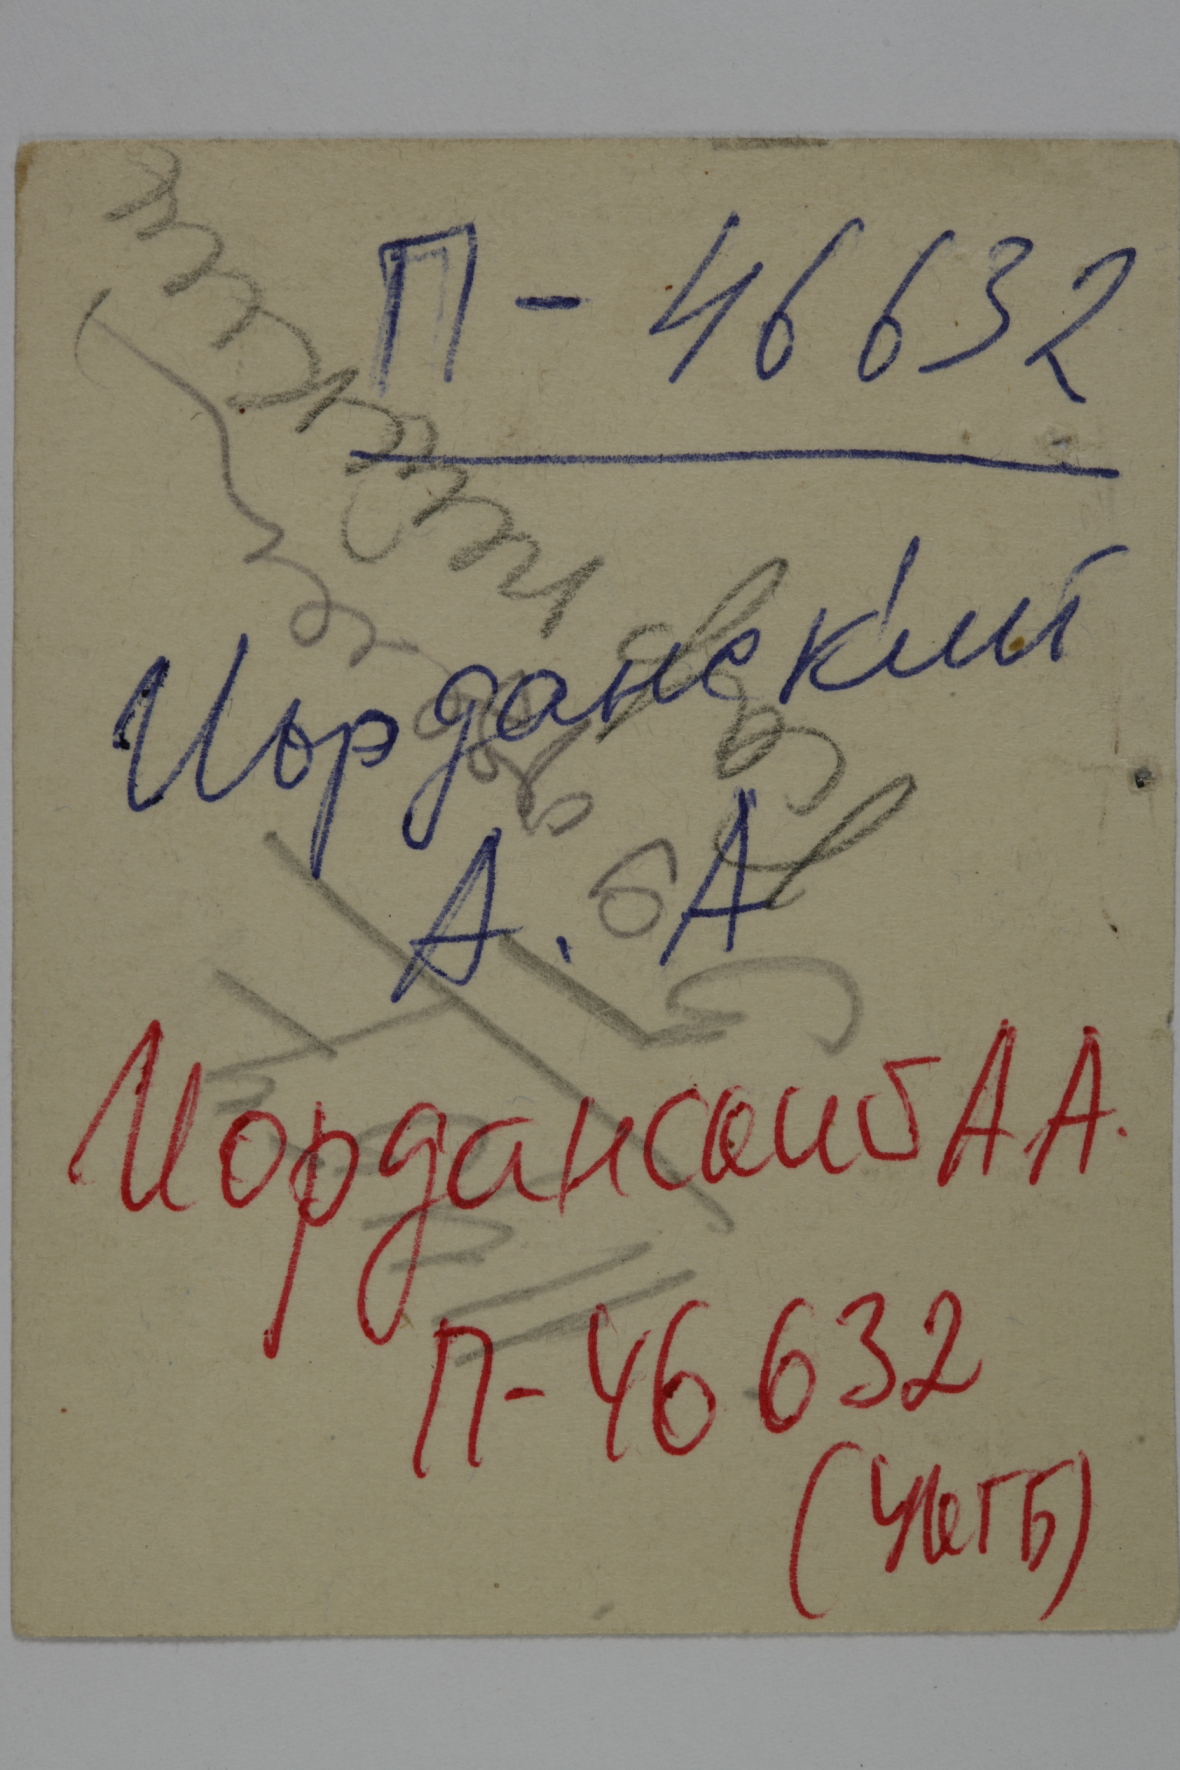 П - 46632
Иорданский
А. А
Иорданский А.А.
П-46632